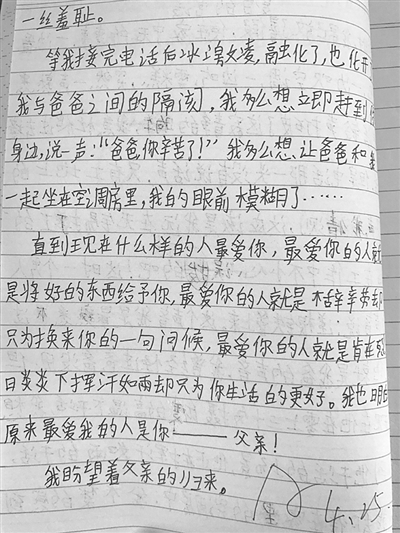 一丝羞耻。
等我接完电话后冰溶凌,融虫化了,也化开
我与爸爸之间的隔阂,我多么想立即赶到
身边,说一声:“爸爸,你辛苦了!”我多么想让爸爸和我
一起坐在空调房里,我的眼前模糊了……
直到现在什么样的人最爱你,最爱你的人就
是将好的东西给予你,最爱你的人就是辛辛劳劳却
只为换来你的一句问候,最爱你的人就是肯在烈
日炎炎下挥汗如雨却只为你生活的更好。我也明白
原来最爱我的人是你——父亲!
我盼望着父亲的归来。
A 4.25